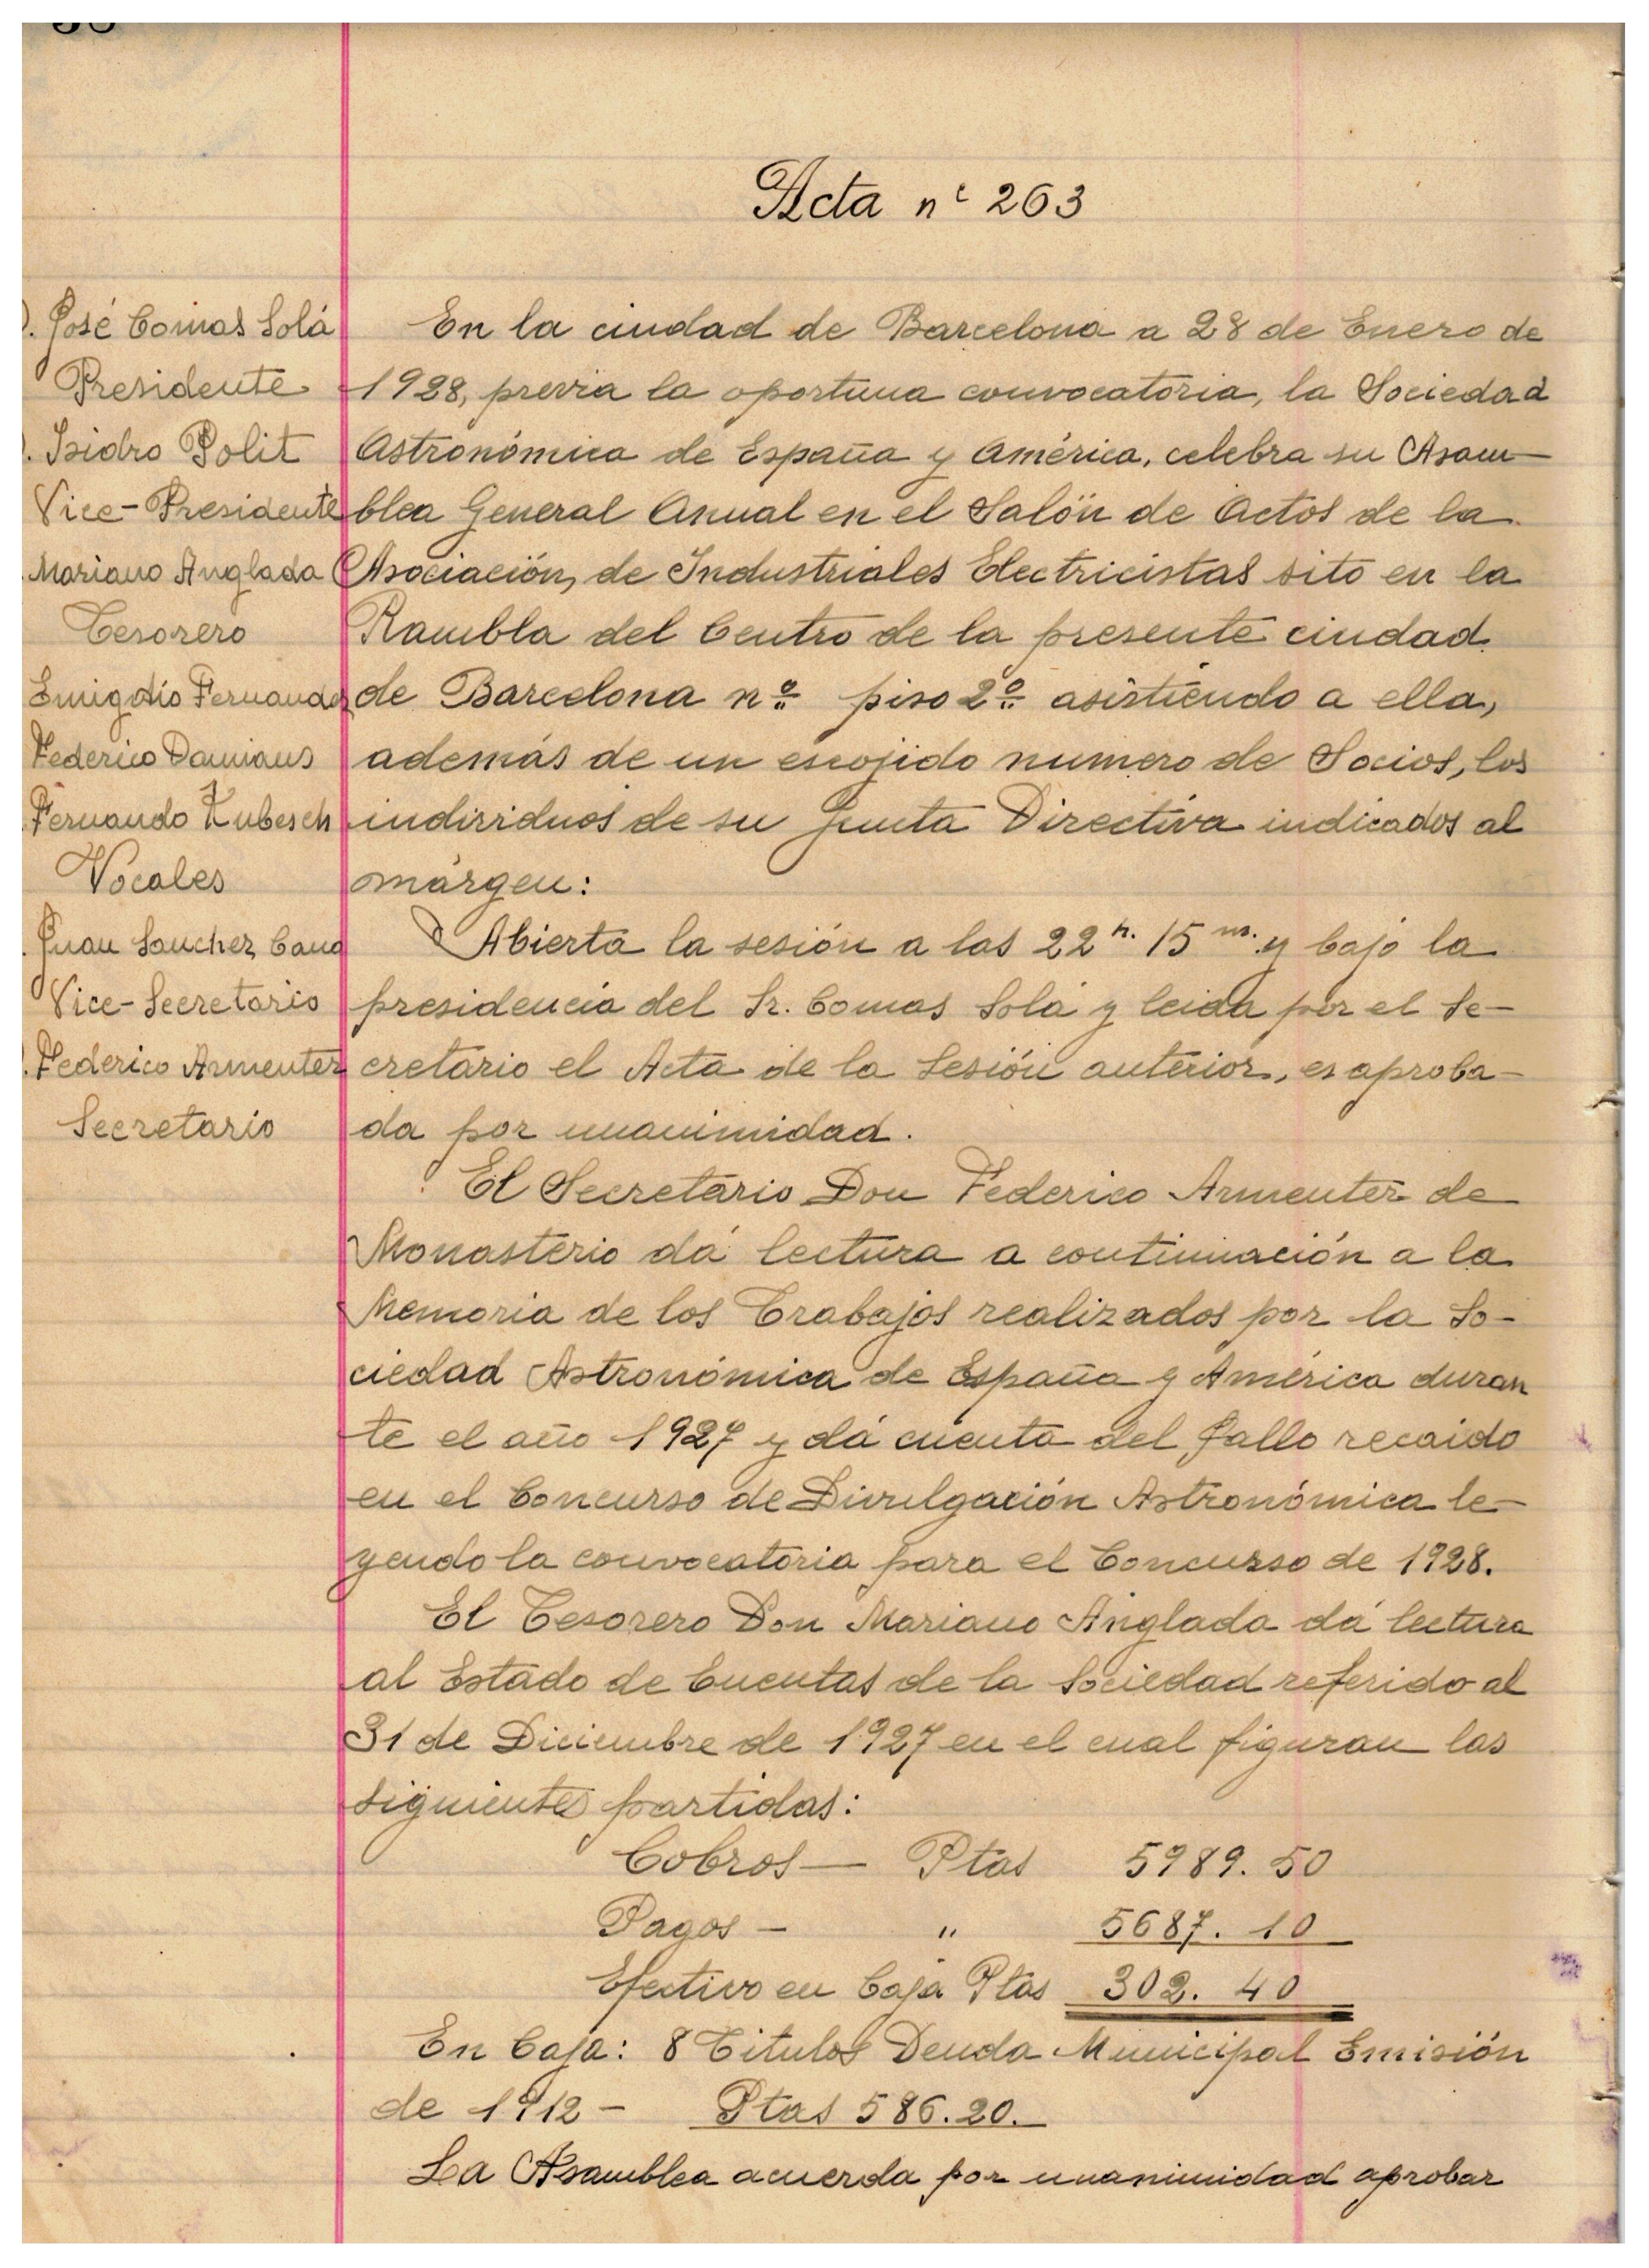 Acta nº 263
D. José Comas Solá
Presidente
D. Isidro Polit
Vice-Presidente
. Mariano Anglada
Tesorero
Emigdio Fernandez
Federico Damians
. Fernando Kubesch
Vocales
. Juan Sanchez Cano
Vice-Secretario
. Federico Armenter
Secretario
En la ciudad de Barcelona a 28 de Enero de
1928, previa la oportuna convocatoria, la Sociedad
Astronómica de España y América, celebra su Asam-
blea General Anual en el Salón de Actos de la
Asociación, de Industriales Electricistas sito en la
Rambla del Centro de la presente ciudad
de Barcelona nº piso 2º asistiendo a ella,
además de un escojido numero de Socios, los
individuos de su Junta Directiva indicados al
márgen:
Abierta la sesión a las 22 h. 15 m. y bajo la
presidencia del Sr. Comas Solá y leida por el Se-
cretario el Acta de la Sesión anterior, es aproba-
da por unanimidad.
El Secretario Don Federico Armenter de
Monasterio dá lectura a continuación a la
Memoria de los Trabajos realizados por la So-
ciedad Astronómica de España y América duran
te el año 1927 y dá cuenta del fallo recaido
en el Concurso de Divulgación Astronómica le-
yendo la convocatoria para el Concurso de 1928.
El Tesorero Don Mariano Anglada dá lectura
al Estado de Cuentas de la Sociedad referido al
31 de Diciembre de 1927 en el cual figuran las
siguientes partidas:
Cobros — Ptas 5989.50
Pagos - " 5687.10
Efectivo en Caja Ptas 302.40
En Caja: 8 Titulos Deuda Municipal Emisión
de 1912 - Ptas 586.20.
La Asamblea acuerda por unanimidad aprobar